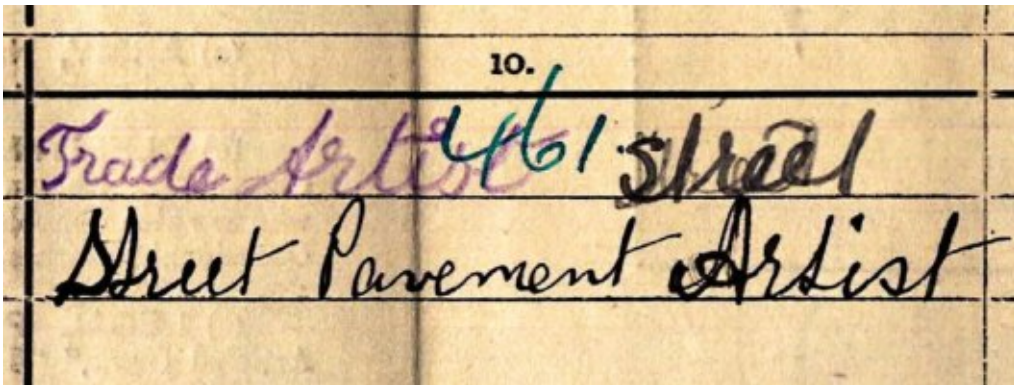 10.
Trade Artist 461 Street
Street Pavement Artist